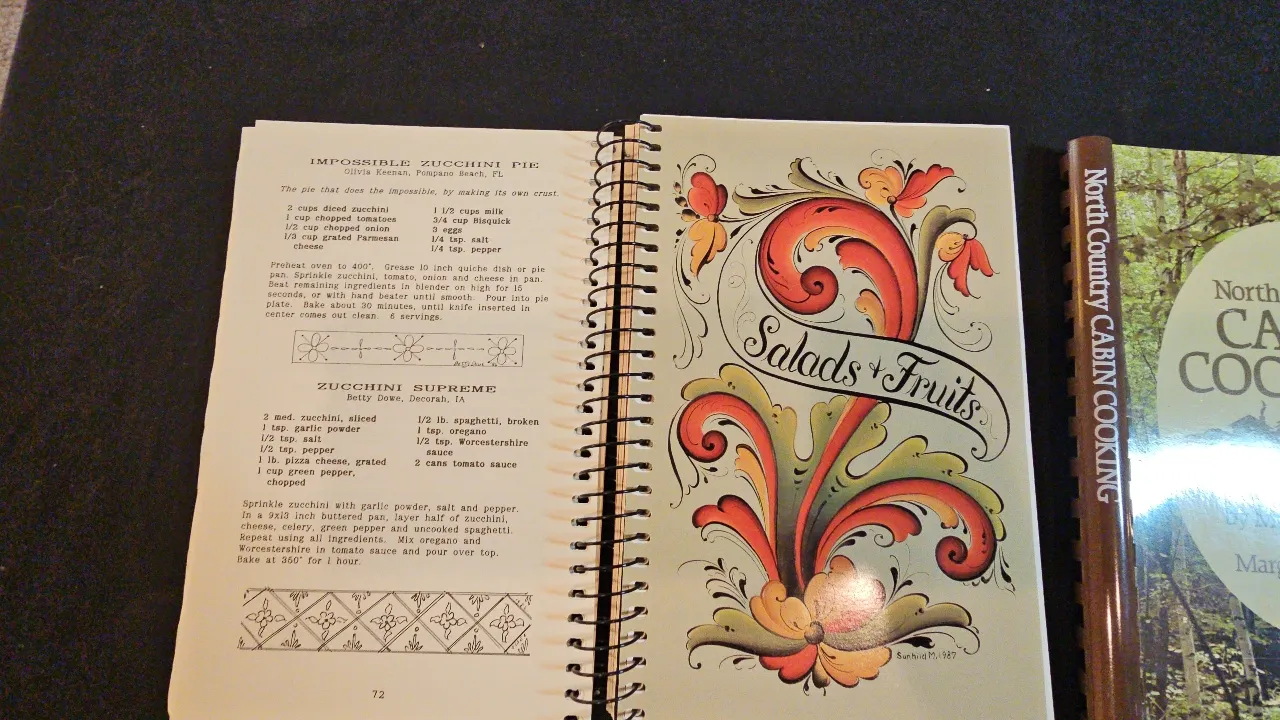 IMPOSSIBLE ZUCCHINI PIE
Olivia Keenan, Pompano Beach, FL
The pie that does the impossible, by making its own crust.
2 cups diced zucchini
1 cup chopped tomatoes
1/2 cup chopped onion
1/3 cup grated Parmesan
cheese
1 1/2 cups milk
3/4 cup Bisquick
3 eggs
1/4 tsp. salt
1/4 tsp. pepper
Preheat oven to 400°. Grease 10 inch quiche dish or pie
pan. Sprinkle zucchini, tomato, onion and cheese in pan.
Beat remaining ingredients in blender on high for 15
seconds, or with hand beater until smooth. Pour into pie
plate. Bake about 30 minutes, until knife inserted in
center comes out clean. 6 servings.
ZUCCHINI SUPREME
Betty Dowe, Decorah, IA
2 med. zucchini, sliced
1 tsp. garlic powder
1/2 tsp. salt
1/2 tsp. pepper
1 lb. pizza cheese, grated
1 cup green pepper,
chopped
1/2 lb. spaghetti, broken
1 tsp. oregano
1/2 tsp. Worcestershire
sauce
2 cans tomato sauce
Sprinkle zucchini with garlic powder, salt and pepper.
In a 9x13 inch buttered pan, layer half of zucchini,
cheese, celery, green pepper and uncooked spaghetti.
Repeat using all ingredients. Mix oregano and
Worcestershire in tomato sauce and pour over top.
Bake at 360° for 1 hour.
72
Salads & Fruits
Sunhild M. 1987
North Country CABIN COOKING
North
CA
COO
Mar